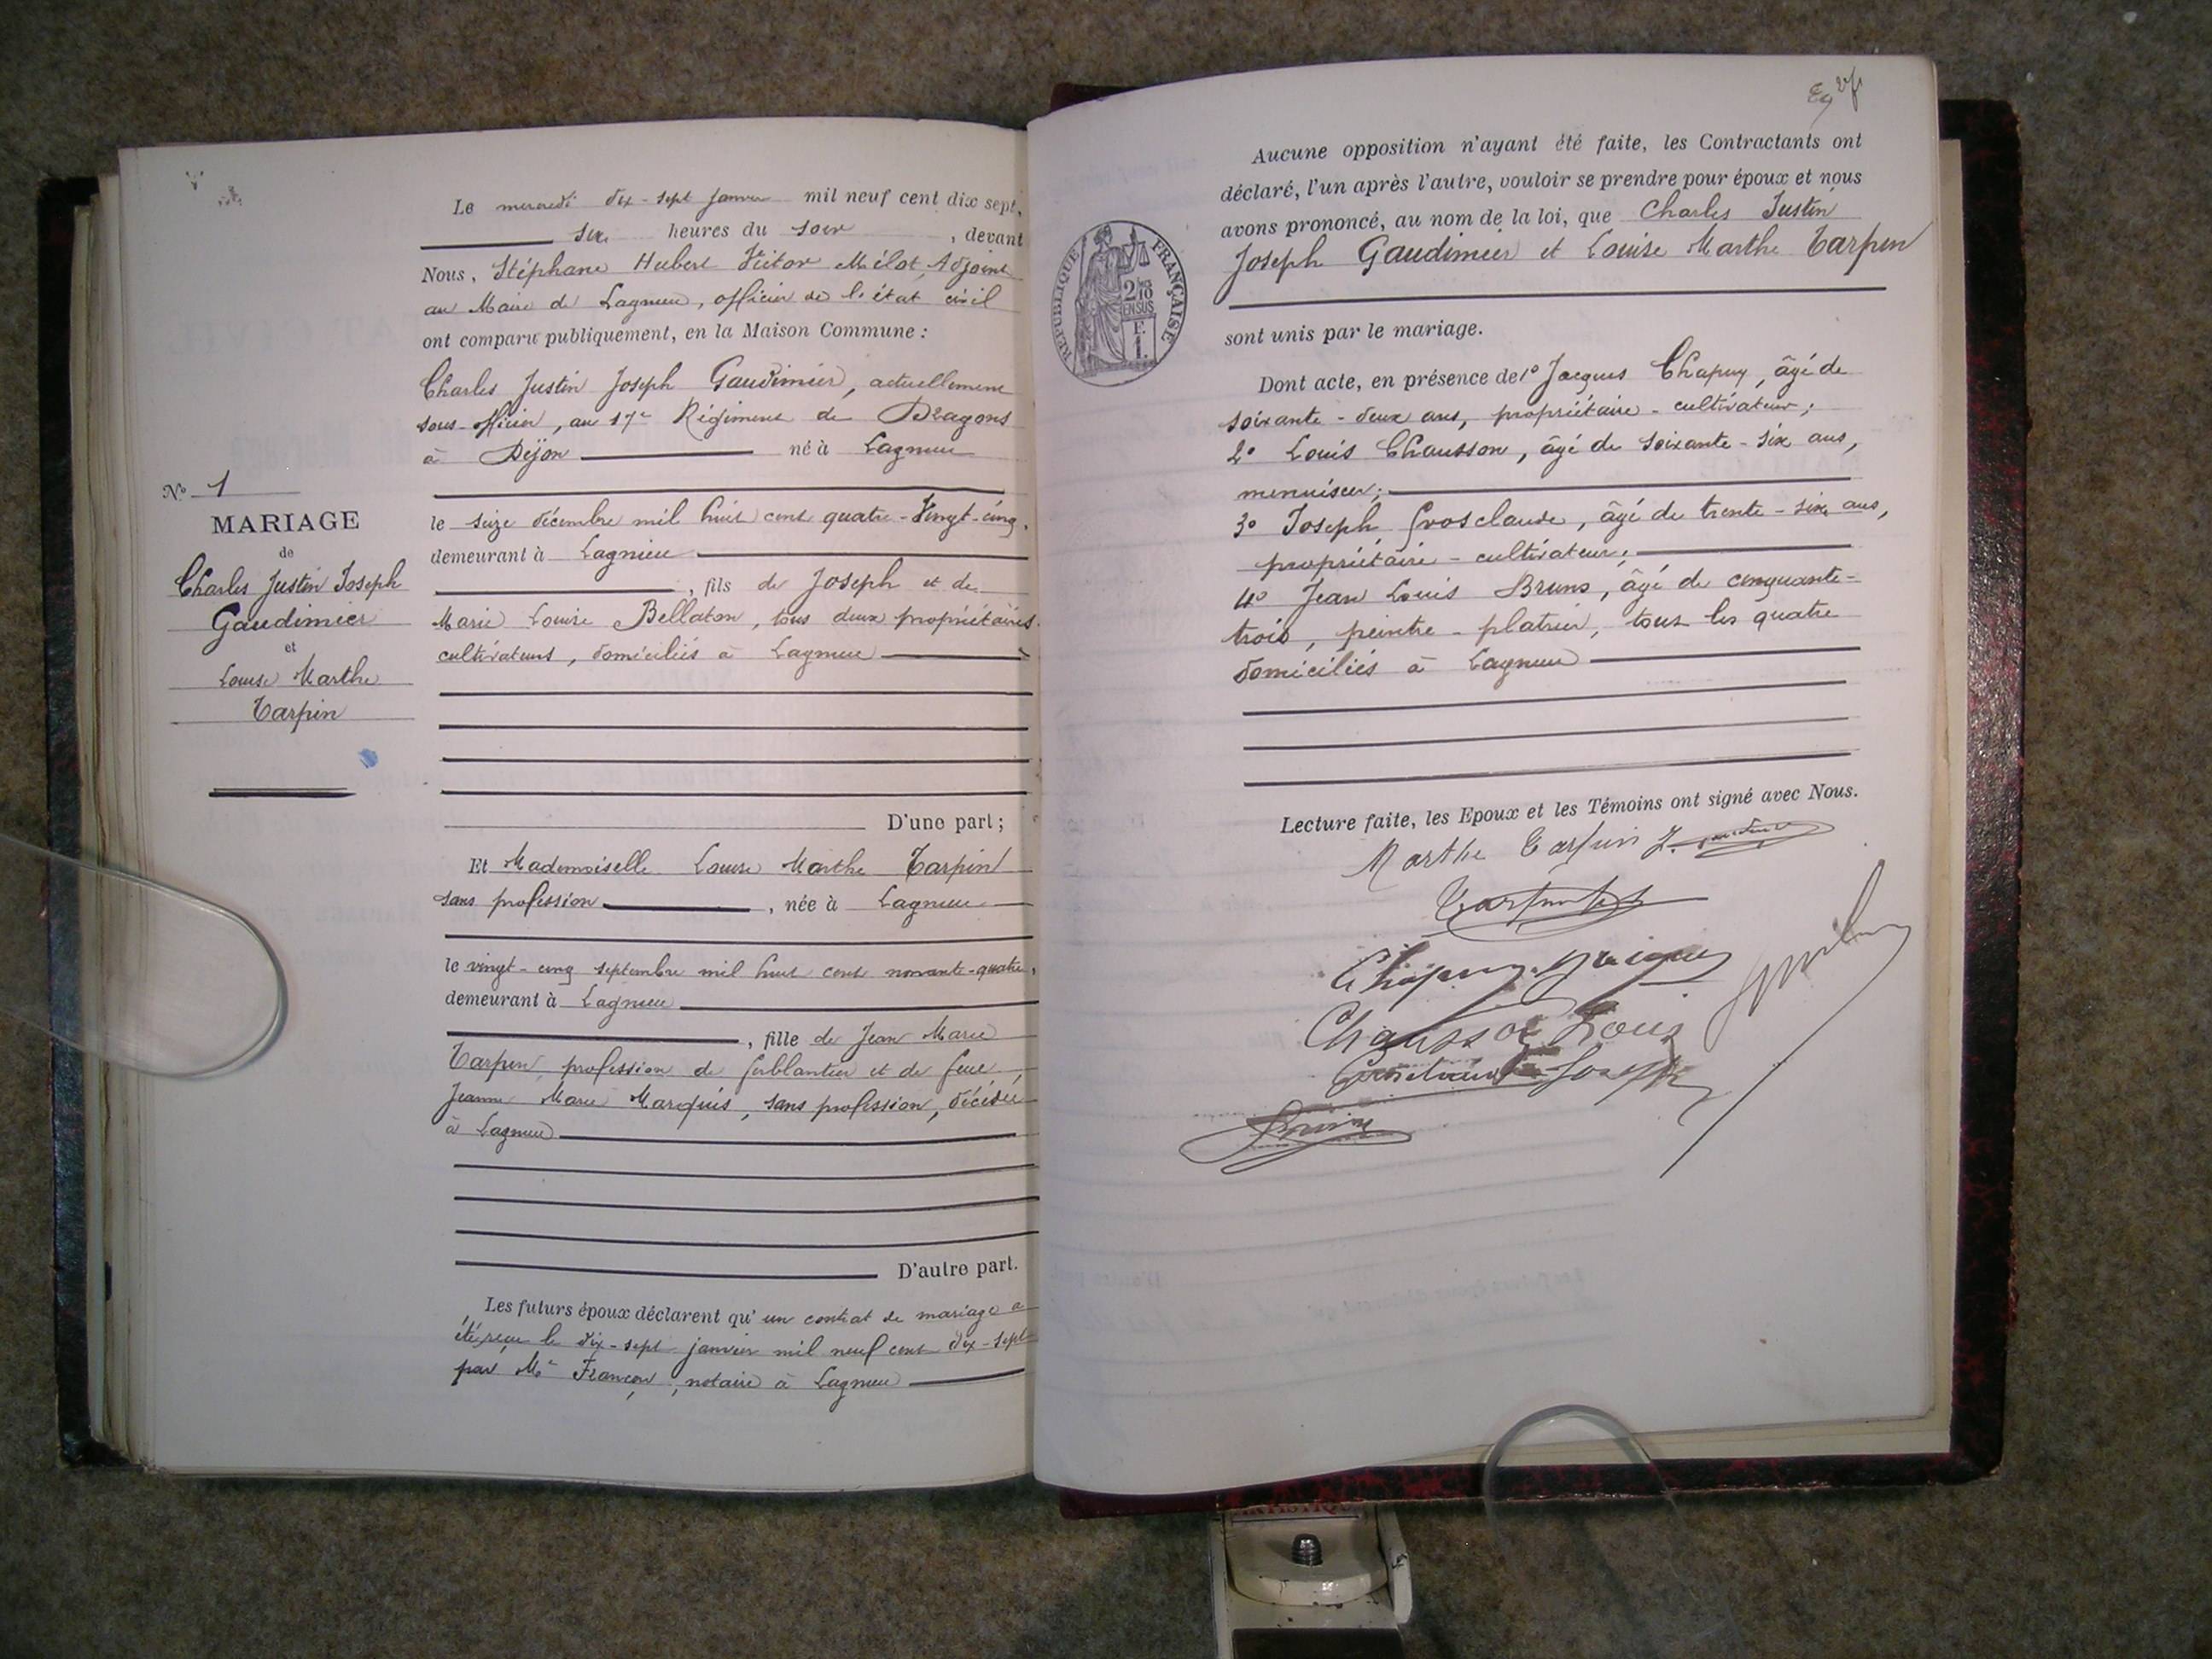 Le mercredi dix-sept janvier mil neuf cent dix sept,
six heures du soir, devant
Nous, Stéphane Hubert Victor Mélot, Adjoint
au Maire de Lagnieu, officier de l'état civil
ont comparu publiquement, en la Maison Commune :
Charles Justin Joseph Gaudimier, actuellement
sous-officier, au 17e Régiment de Dragons
à Dijon né à Lagnieu
le seize décembre mil huit cent quatre-vingt-cinq,
demeurant à Lagnieu
, fils de Joseph et de
Marie Louise Bellaton, tous deux propriétaires
cultivateurs, domiciliés à Lagnieu
D'une part ;
Et Mademoiselle Louise Marthe Tarpin
sans profession, née à Lagnieu
le vingt-cinq septembre mil huit cent nonante-quatre,
demeurant à Lagnieu
, fille de Jean Marie
Tarpin, profession de ferblantier et de feue
Jeanne Marie Marquis, sans profession, décédée
à Lagnieu
D'autre part.
Les futurs époux déclarent qu'un contrat de mariage a
été reçu le dix-sept janvier mil neuf cent dix-sept
par Me Françon, notaire à Lagnieu
No 1
MARIAGE
de
Charles Justin Joseph
Gaudimier
et
Louise Marthe
Tarpin
Aucune opposition n'ayant été faite, les Contractants ont
déclaré, l'un après l'autre, vouloir se prendre pour époux et nous
avons prononcé, au nom de la loi, que Charles Justin
Joseph Gaudimier et Louise Marthe Tarpin
sont unis par le mariage.
Dont acte, en présence de 1° Jacques Chapuy, âgé de
soixante-deux ans, propriétaire-cultivateur;
2° Louis Chausson, âgé de soixante-six ans,
menuisier;
3° Joseph Grosclaude, âgé de trente-six ans,
propriétaire-cultivateur;
4° Jean Louis Bruno, âgé de cinquante-
trois, peintre-platrier, tous les quatre
domiciliés à Lagnieu
Lecture faite, les Epoux et les Témoins ont signé avec Nous.
Marthe Tarpin
Chapuy Jacques
Chausson Louis
Joseph
REPUBLIQUE FRANÇAISE
2/10
EN SUS
F.
1.